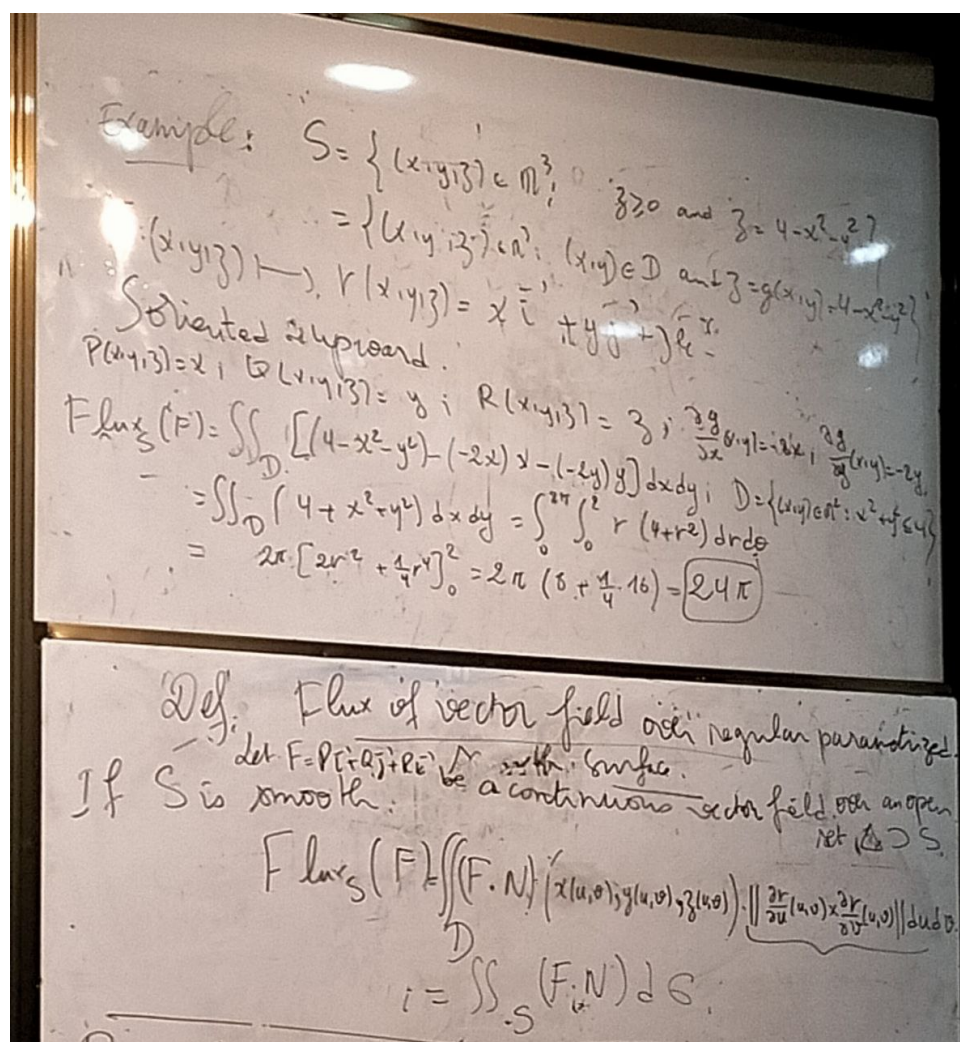 Example: S = {(x,y,z) ∈ ℝ³; z≥0 and z = 4-x²-y²}
= {(x,y,z) ∈ ℝ³: (x,y) ∈ D and z = g(x,y) = 4-x²-y²}
(x,y,z) ↦ r(x,y,z) = x i + y j + z k
S oriented upward.
P(x,y,z) = x ; Q(x,y,z) = y ; R(x,y,z) = z ; ∂g/∂x (x,y) = -2x ; ∂g/∂y (x,y) = -2y
Flux_S (F) = ∬_D [(4-x²-y²) - (-2x) x - (-2y) y] dx dy ; D = {(x,y) ∈ ℝ² : x²+y² ≤ 4}
= ∬_D (4 + x² + y²) dx dy = ∫_0^{2π} ∫_0^2 r (4+r²) dr dθ
= 2π [2r² + 1/4 r⁴]_0^2 = 2π (8 + 1/4 · 16) = 24π
Def. Flux of vector field over regular parametrized
surface.
Let F = Pi + Qj + Rk be a continuous vector field over an open
set Δ ⊃ S.
If S is smooth.
Flux_S (F) = ∬_D (F.N) (x(u,v), y(u,v), z(u,v)) · ‖∂r/∂u (u,v) × ∂r/∂v (u,v)‖ du dv.
:= ∬_S (F.N) dσ.